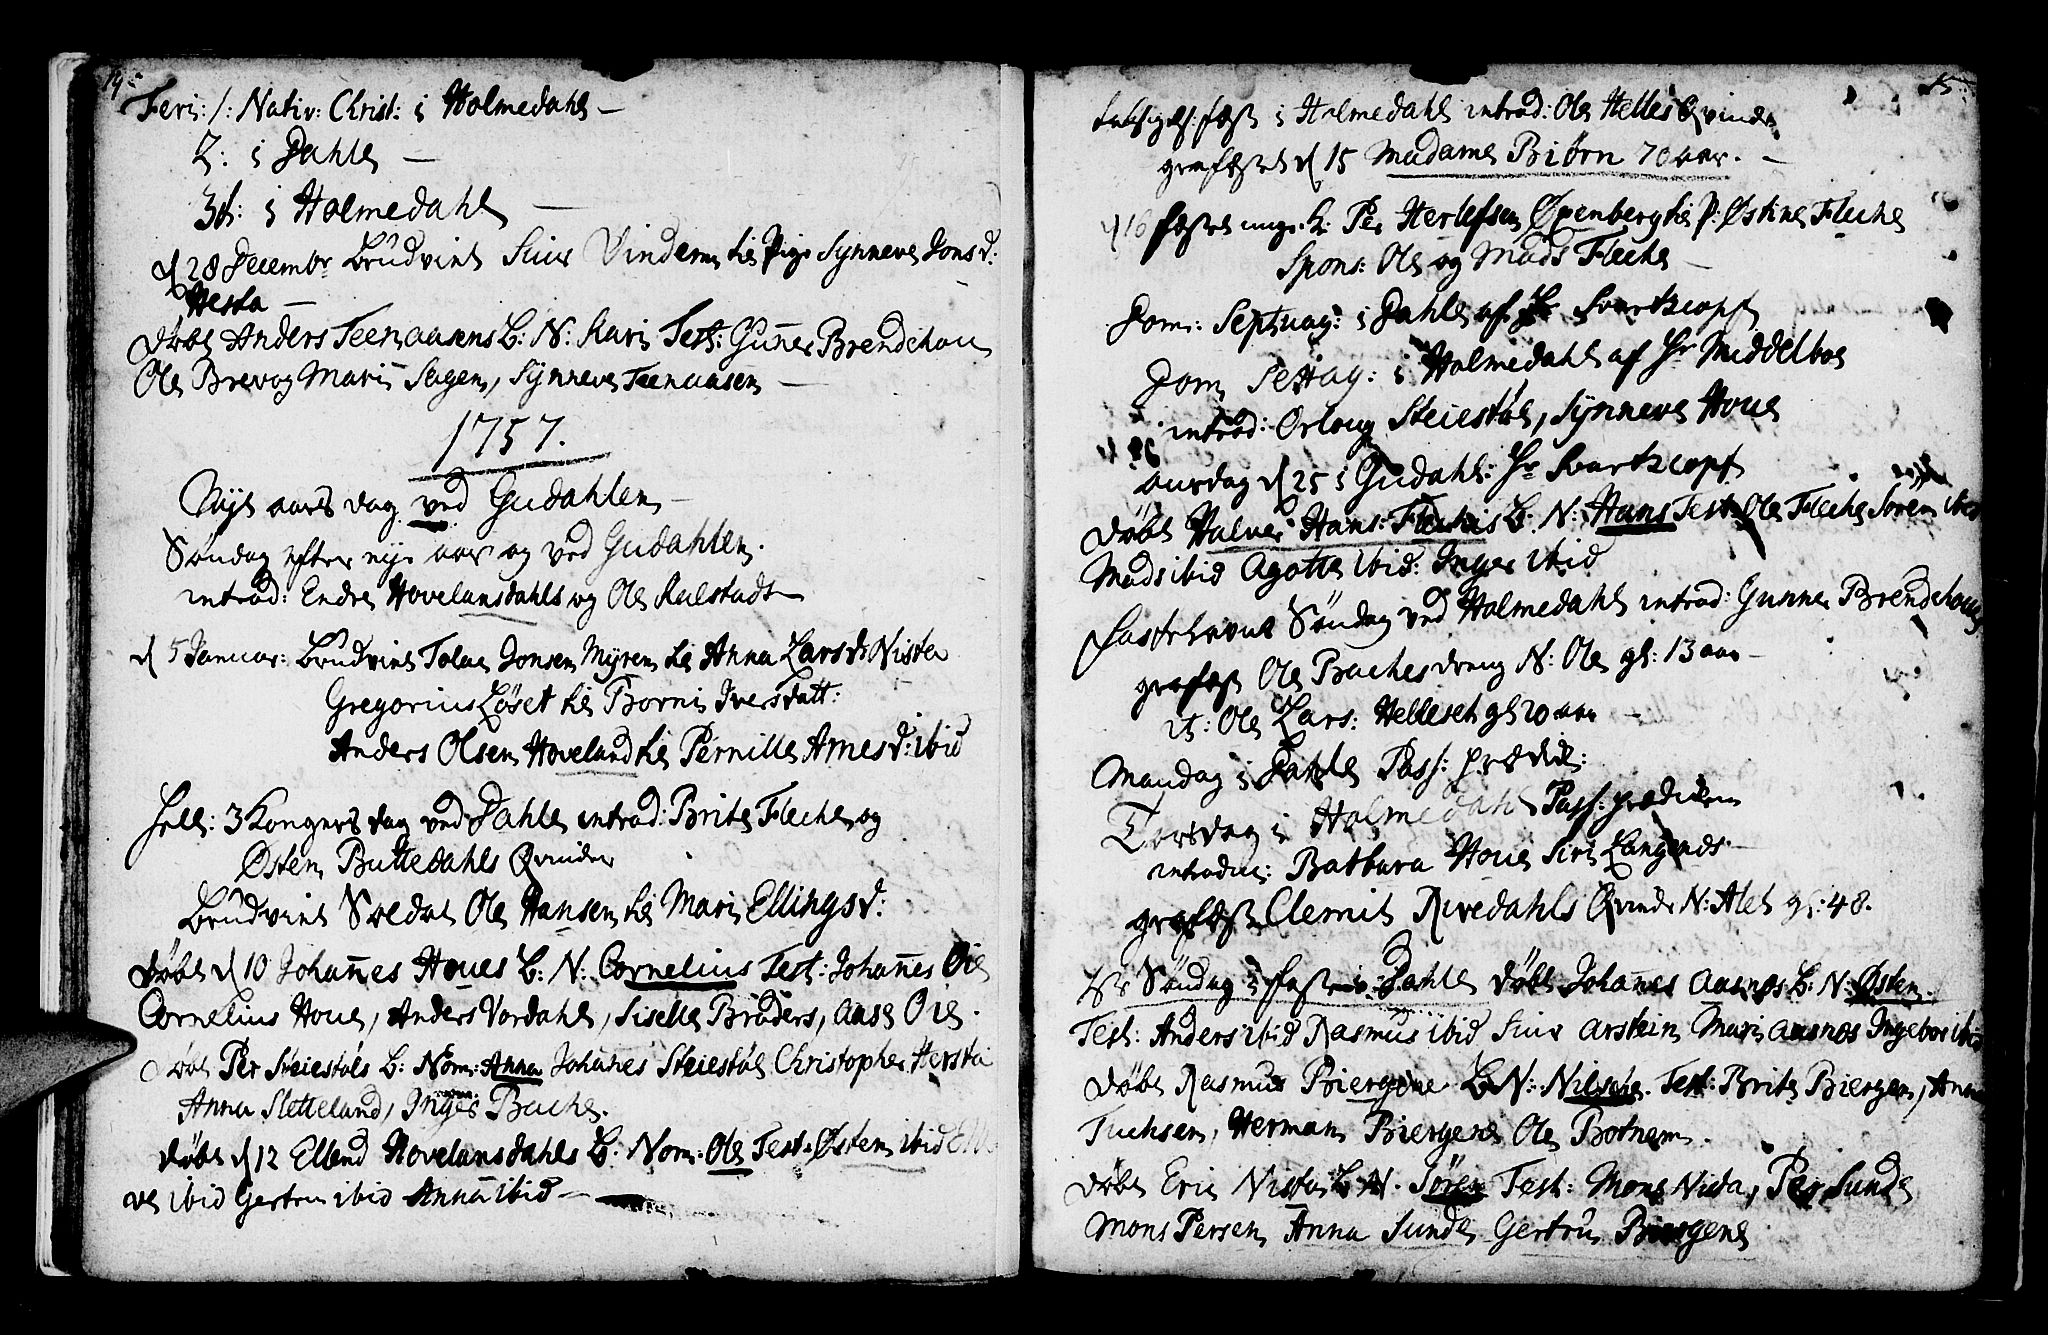 14
Feri: 1: Nativ: Christ: i Holmedahl
2: i Dahle
3d: i Holmedahl
d 28 Decembr Brudviet Siur Vinderne til Pige Synneve Jonsd:
Hesta
døbt Anders Teenaasens B: N: Kari Test: Guner Brendehou
Ole Brevog Mari Sagen, Synneve Teenaasen
1757.
Nyt aars dag ved Gudahlen
Søndag efter nyt aar og ved Gudahlen.
introd: Endre Hovelansdahls og Ole Kalstadt
d 5 Januar: Brudviet Tolae Jonsen Myren til Anna Larsd: Nista
Gregorius Løset til Borni Iversdatt:
Anders Olsen Hoveland til Pernille Arnesd: ibid
Hell: 3 Kongers dag ved Dahle introd: Brite Fleche og
Østen Buttedahls Qvinder
Brudviet Soldat Ole Hansen til Mari Ellingsd:
døbt d 10 Johannes Houes B: N: Cornelius Test: Johannes Øie
Cornelius Houe, Anders Vardahl, Siselle Bruders, Aase Øie.
døbt Per Steiestøls B: Nom: Anna Johanes Steiestøl Christopher Hersta
Anna Sletteland, Inger Bache.
døbt d 12 Ellend Hovelansdahls B: Nom: Ole Test: Østen ibid
ve ibid Gertru ibid Anna ibid
15
i Holmedahl introd: Ole Helles Qvinde
grafæstet d 15 Madame Biørn 70 aar.
d 16 fæstet ungk: Per Herlefsen Øxenberg til P: Østine Fleche
Spons: Ole og Mads Fleche
Dom: Septuag: i Dahle af Hr Svartzcopf
Dom Sexag: i Holmedahl af Hr Middelboe
introd: Orloug Steiestøl, Synneve Houe
aursdag d 25 i Gudahl: Hr Svartzcopf
døbt Halver Hans: Flechis B: N: Hans Test: Ole Fleche Søren ibid
Mads ibid Agotte ibid: Inger ibid
Fastelavns Søndag ved Holmedahl introd: Gunner Brendehoug
grafæst Ole Baches dreng N: Ole gl: 13 aar
it: Ole Lars: Helleset gl 20 aar
Mandag i Dahle Pass: prædik:
Torsdag i Holmedahl Pass: prædiken
introduc: Barbara Houe Siri Langenæs
grafæst Clemit Rivedahls Qvinde N: Alet gl: 48.
1ste Søndag i faste i Dahle døbt Johanes Aasnæs B: N: Østen.
Test: Anders ibid Rasmus ibid Siur Arstein Mari Aasnæs Ingebor ibid
døbt Rasmus Biergene B: N: Nilsche. Test: Brite Biergen, Anna
Tuchsen, Herman Biergene Ole Botnem.
døbt Eric Nista B: N. Søren Test: Mons Nista, Per Sunde
Mons Persen Anna Sunde Gertru Biergene